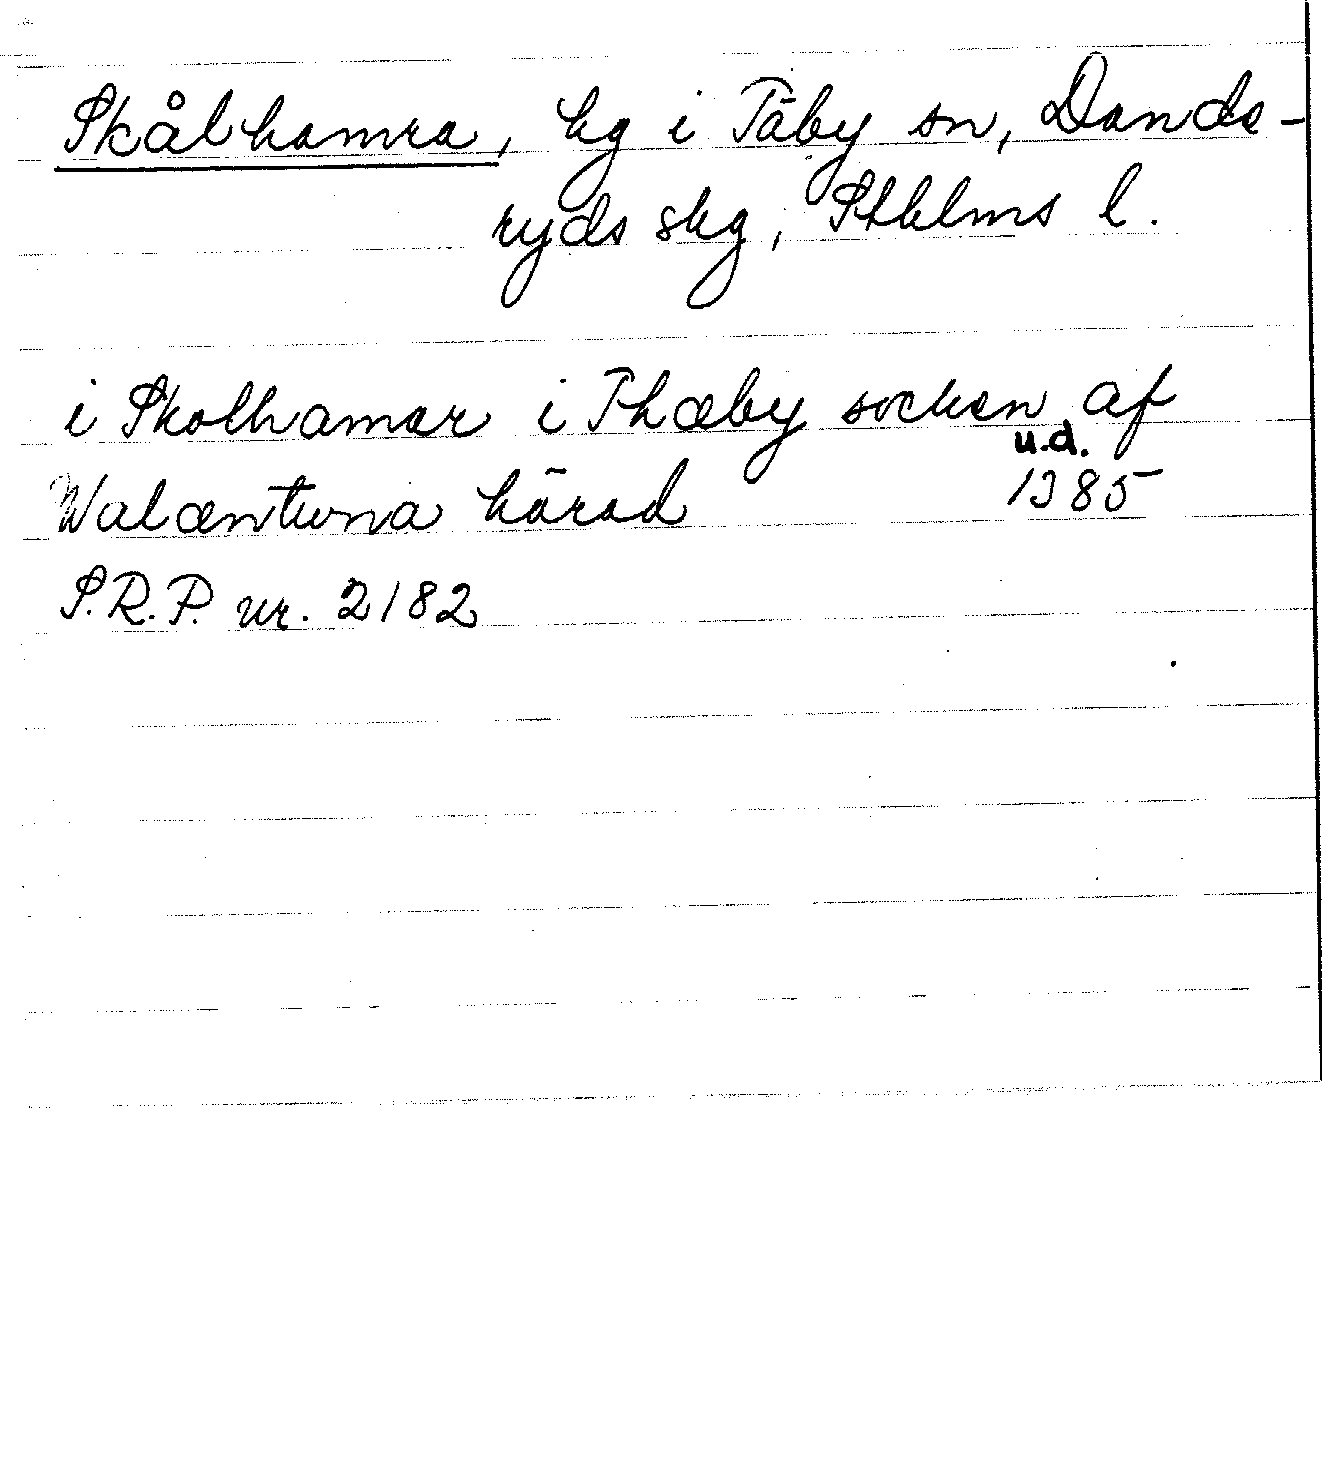 Skålhamra, hg i Täby sn, Dande-
ryds skg, Sthlms l.
i Skolhamar i Thæby socken af
u.d.
Walæntuna härad 1385
S.R.P. nr. 2182